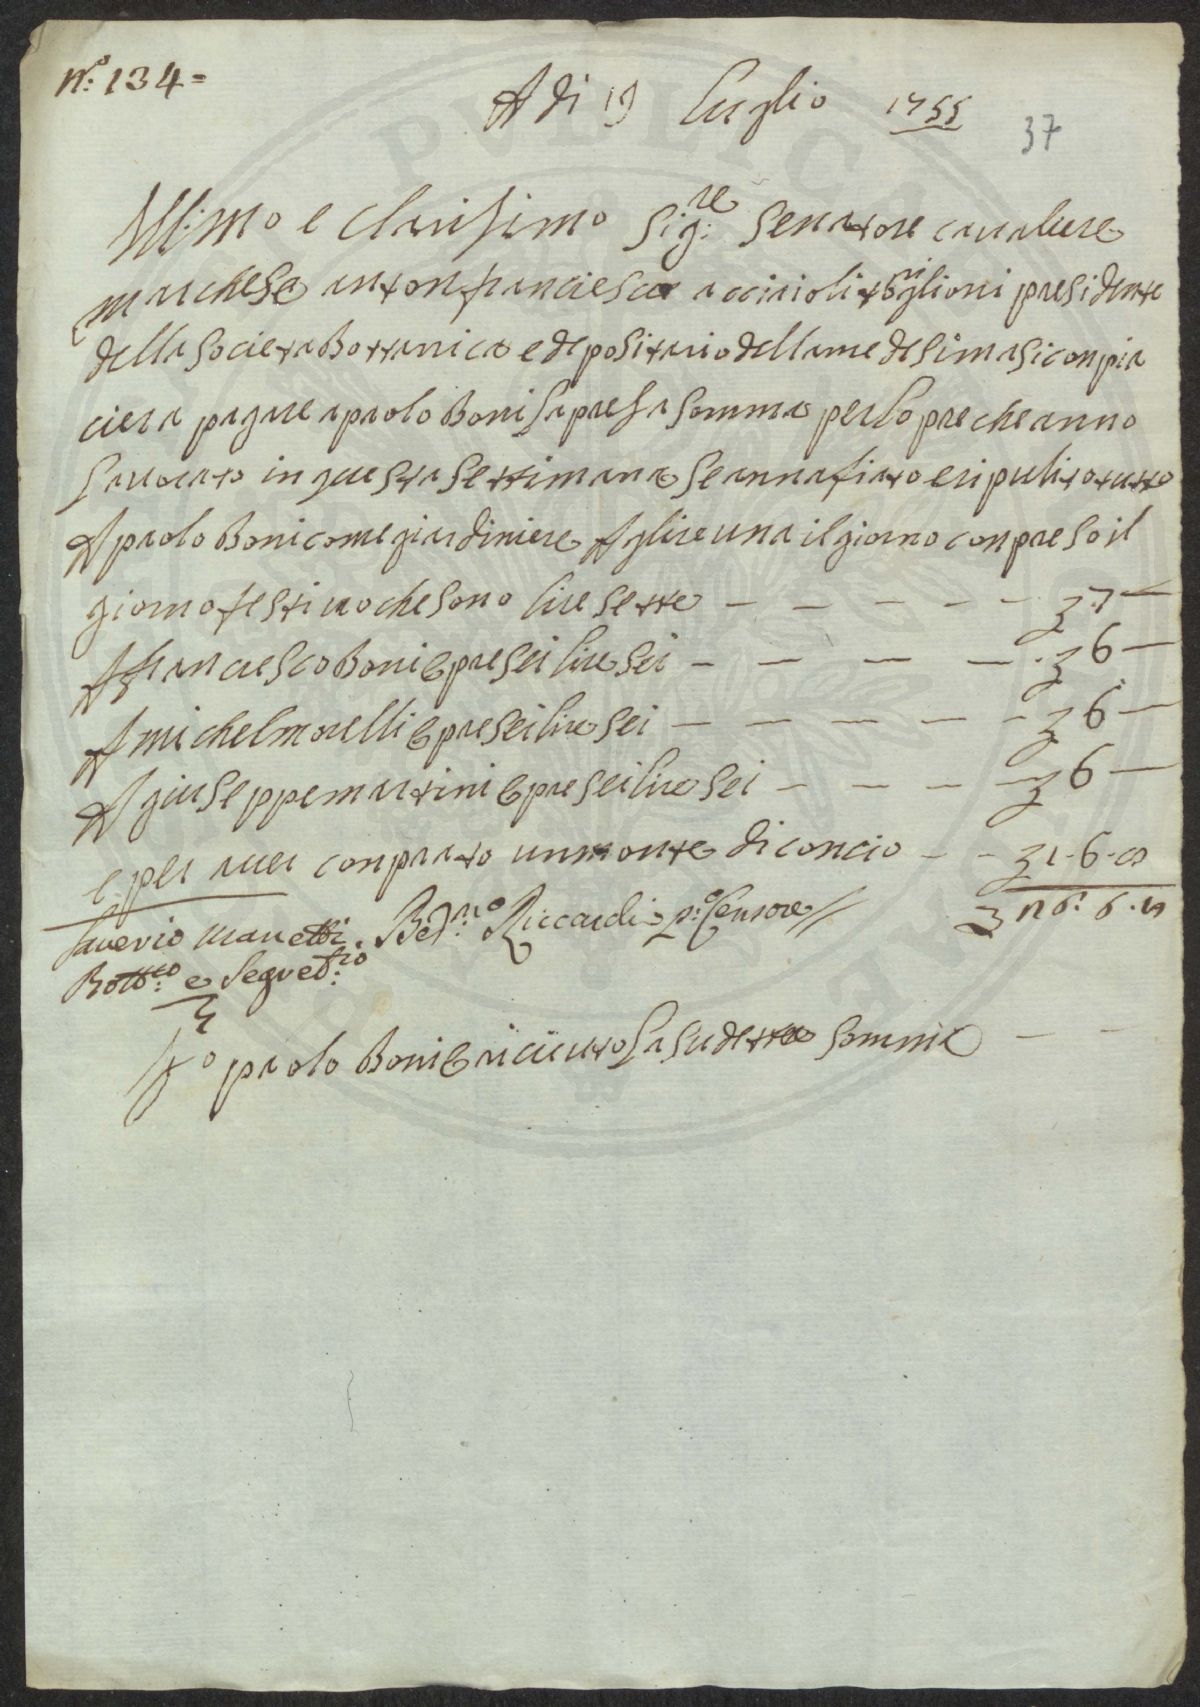 N.º 134=
A di 19 Luglio 1755
37
Ill:mo e clarisimo Sig:re Senatore cavaliere
marchese antonfranciesco acciaioli torriglioni presidente
della societa Bottanica e depositario dellamedesima si conpia
ciera pagare a paolo Boni sapresa somma perlopre che anno
lavorato in questa settimana se annafiato eripulito tutto
A paolo Boni come giardiniere A glire una il giorno conpreso il
giorno festivo che sono lire sette — — — — — 7 —
A franciesco Boni opre sei lire sei — — — — 6 —
A michel morelli opre sei lire sei — — — — — 6 —
A giuseppe martini opre sei lire sei — — — — 6 —
e per aver conprato un monte di concio — — 1.6.8
Saverio Manetti Bed:no Riccardi p:o Censore 26.6.8
Bott:co e Segret:rio
Io paolo Boni o riceuto la sudetta somma — —